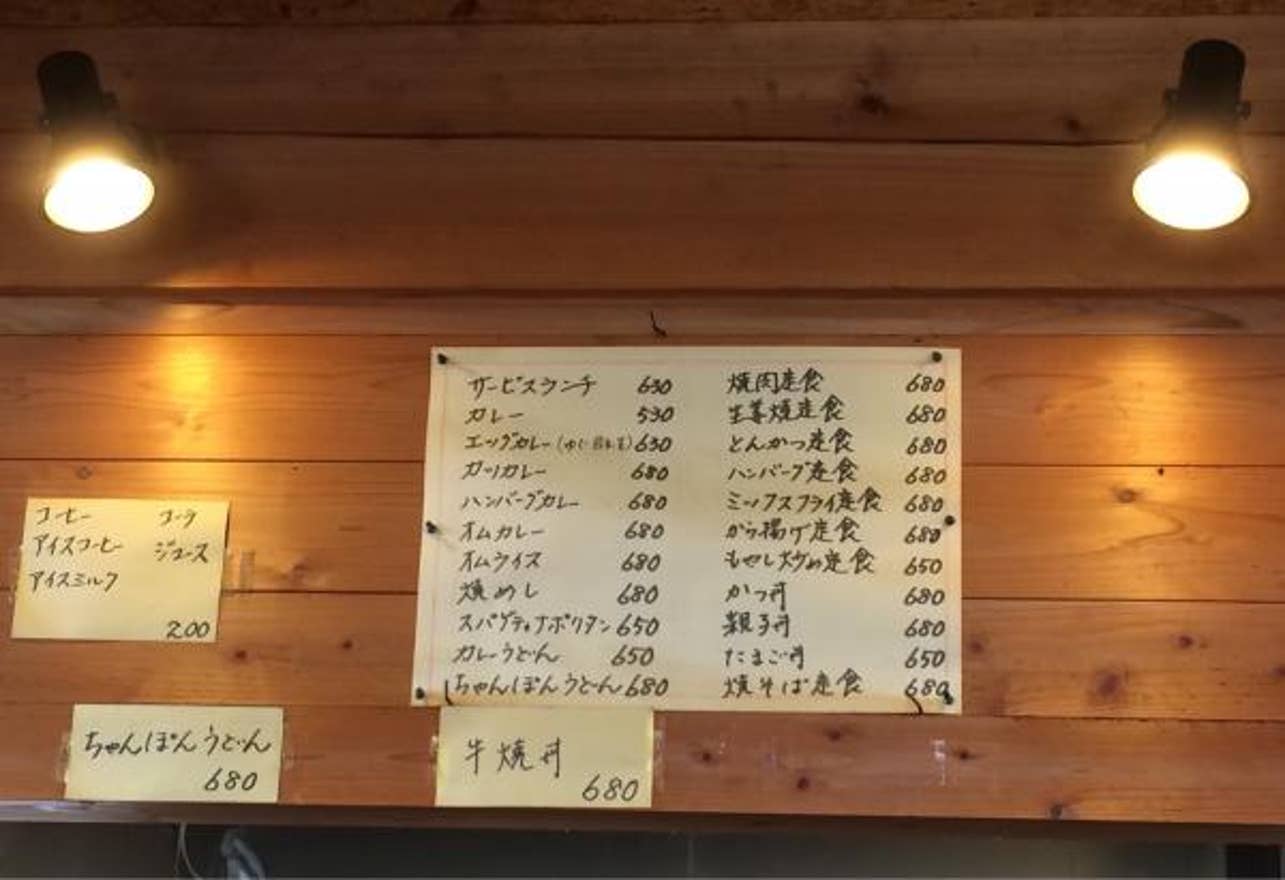 サービスランチ 630
カレー 530
エッグカレー 630
カツカレー 680
ハンバーグカレー 680
オムカレー 680
オムライス 680
焼めし 680
スパゲティナポリタン 650
カレーうどん 650
ちゃんぽんうどん 680
焼肉定食 680
生姜焼定食 680
とんかつ定食 680
ハンバーグ定食 680
ミックスフライ定食 680
から揚げ定食 680
もやし炒め定食 650
かつ丼 680
親子丼 680
たまご丼 650
焼そば定食 680
コーヒー コーラ
アイスコーヒー ジュース
アイスミルク
200
ちゃんぽんうどん
680
牛焼丼
680